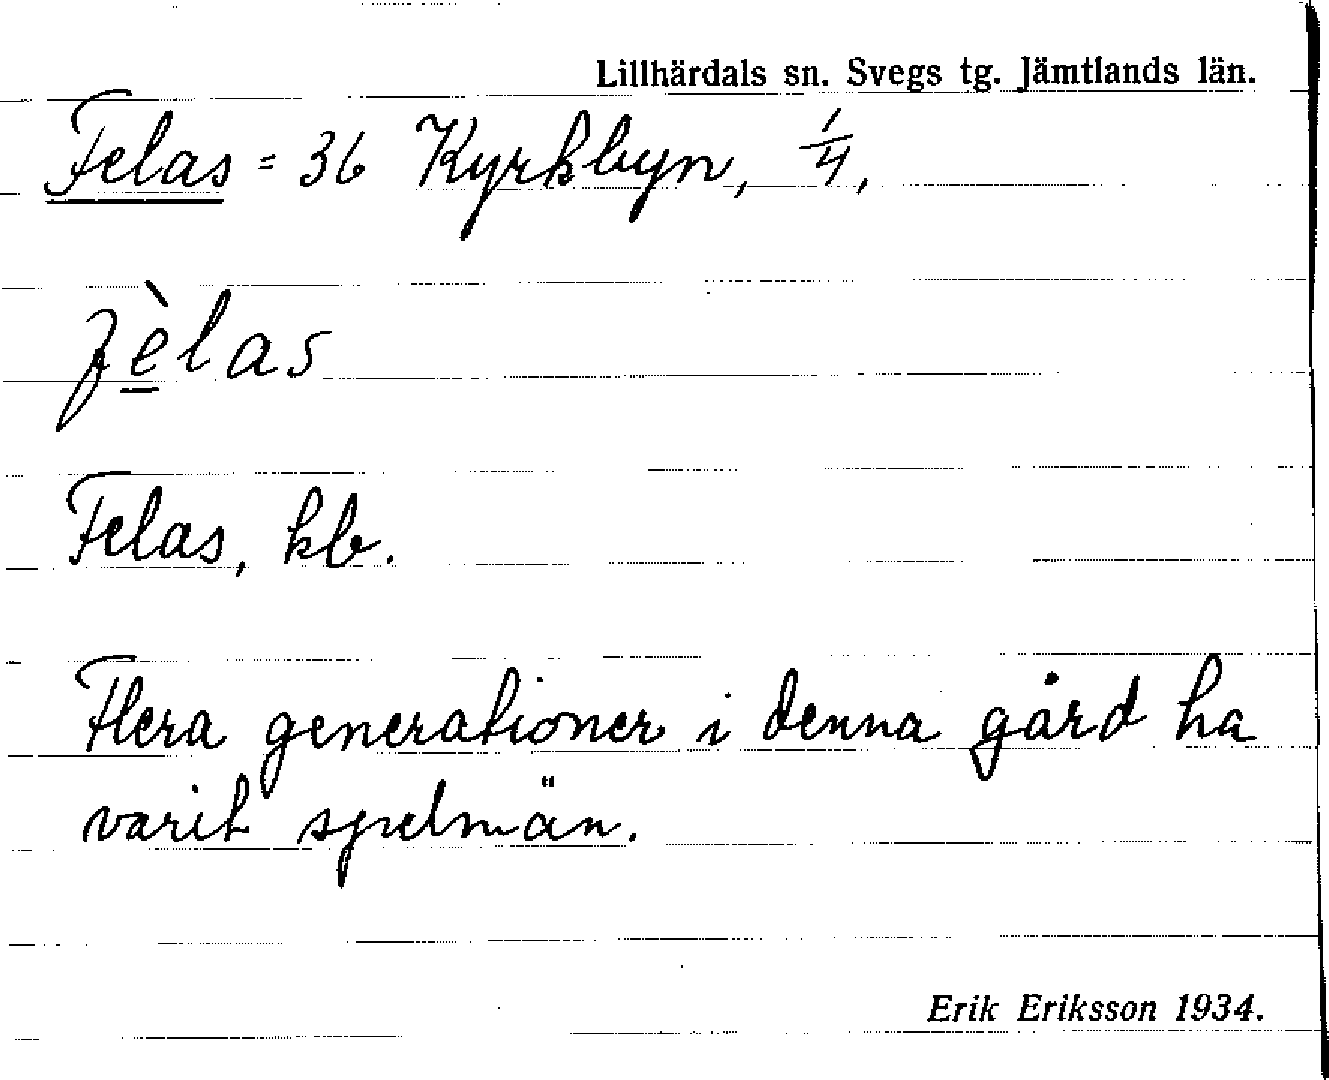 Lillhärdals sn. Svegs tg. Jämtlands län.
Felas = 36 Kyrkbyn, 1/4,
fèlas
Felas, kb.
Flera generationer i denna gård ha
varit spelmän.
Erik Eriksson 1934.